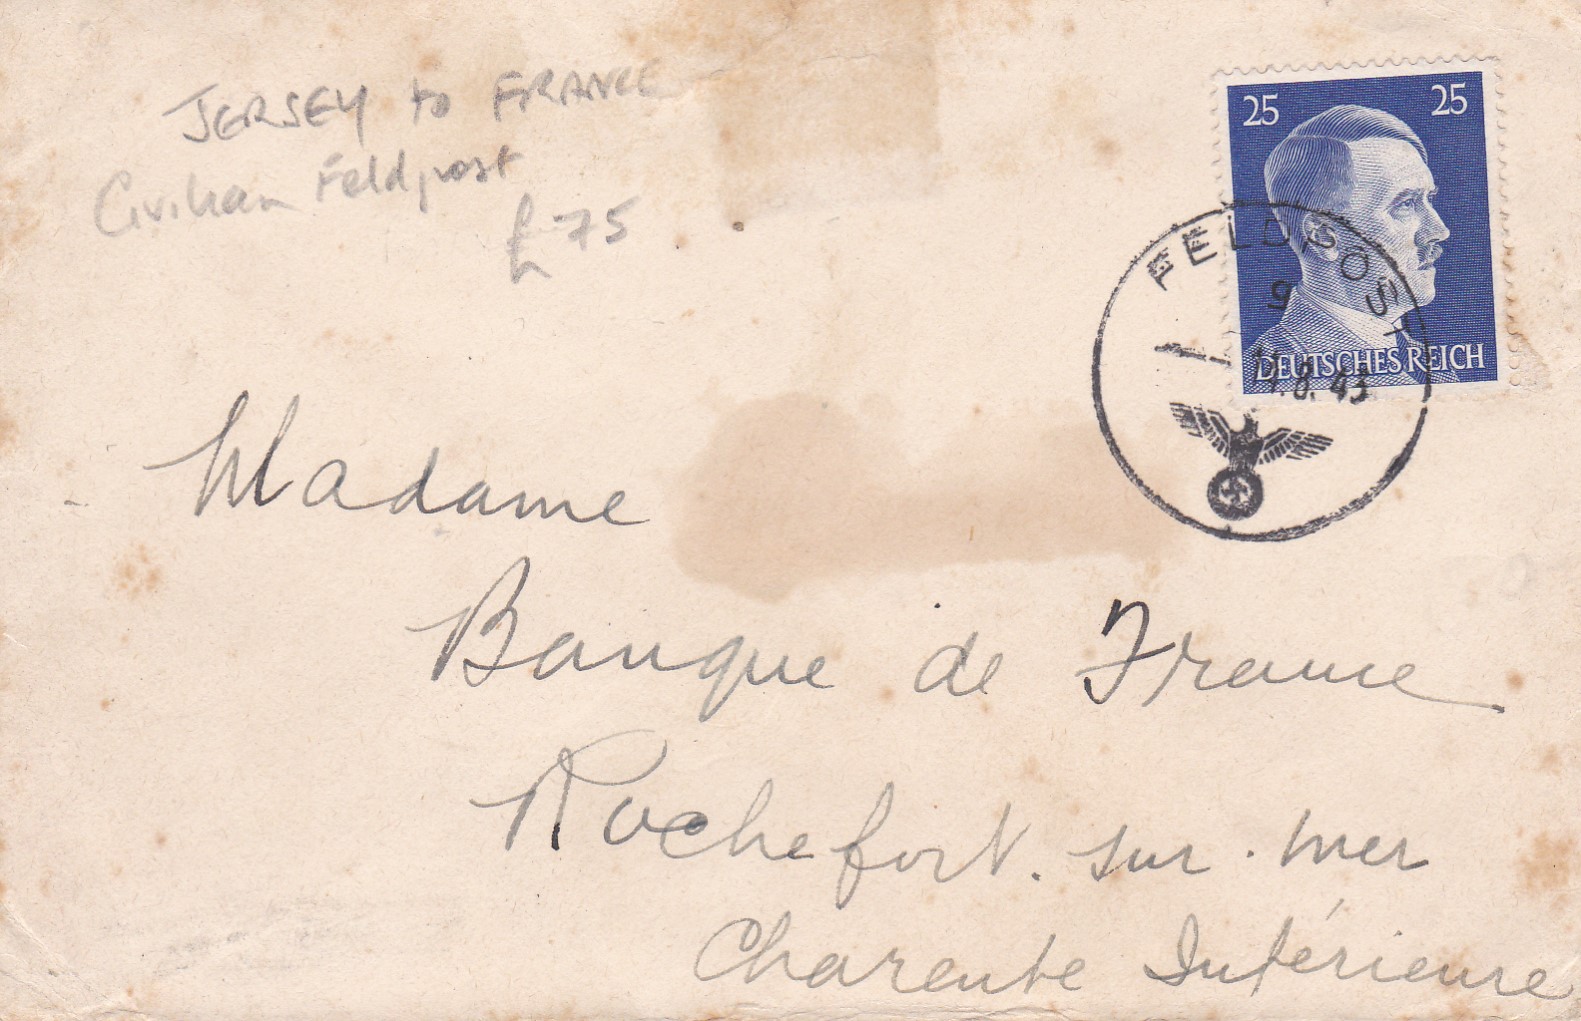 JERSEY to FRANCE
Civilian Feldpost
£75
25 25
DEUTSCHES REICH
FELDPOST
g
.8.43
Madame
Banque de France
Rochefort. sur. mer
Charente Inférieure